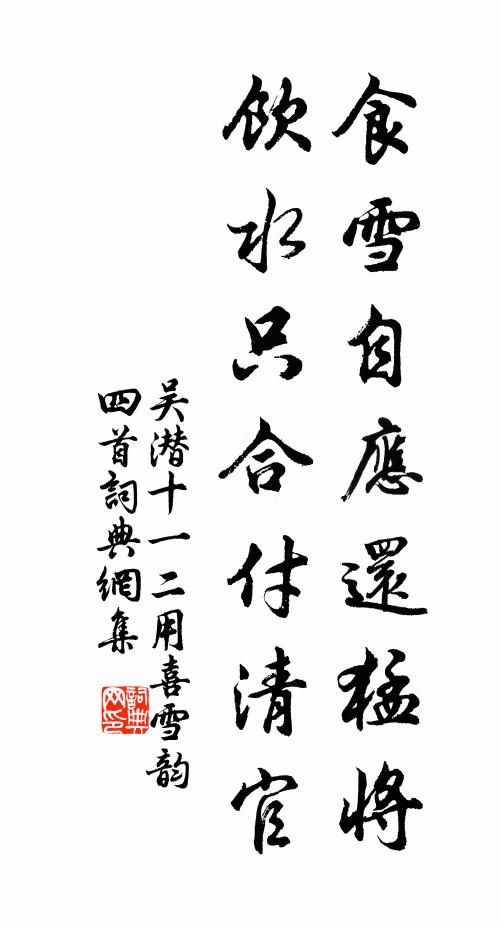 食雪自應還猛將
飲水只合付清官
吴潜十一二用喜雪韵
四首詞典網集
詞典
网印